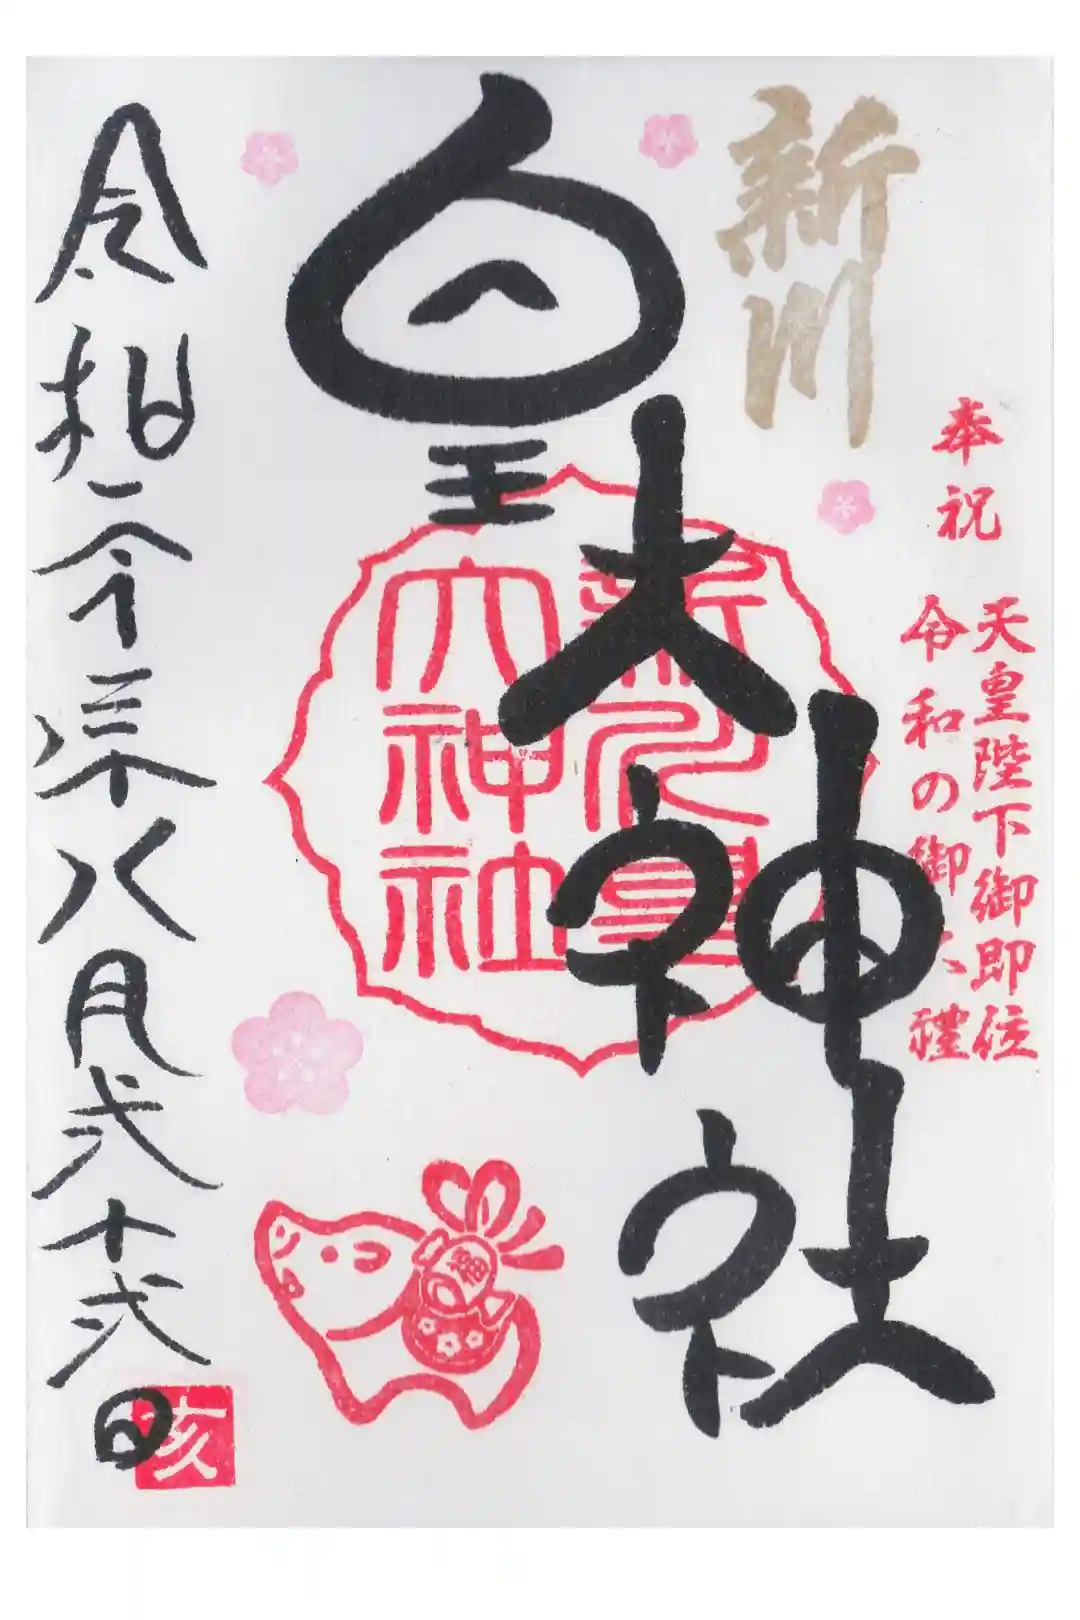 新川
奉祝
天皇陛下御即位
令和の御大禮
皇大神社
新川皇
大神社
令和元年八月弐十弐日
福
亥